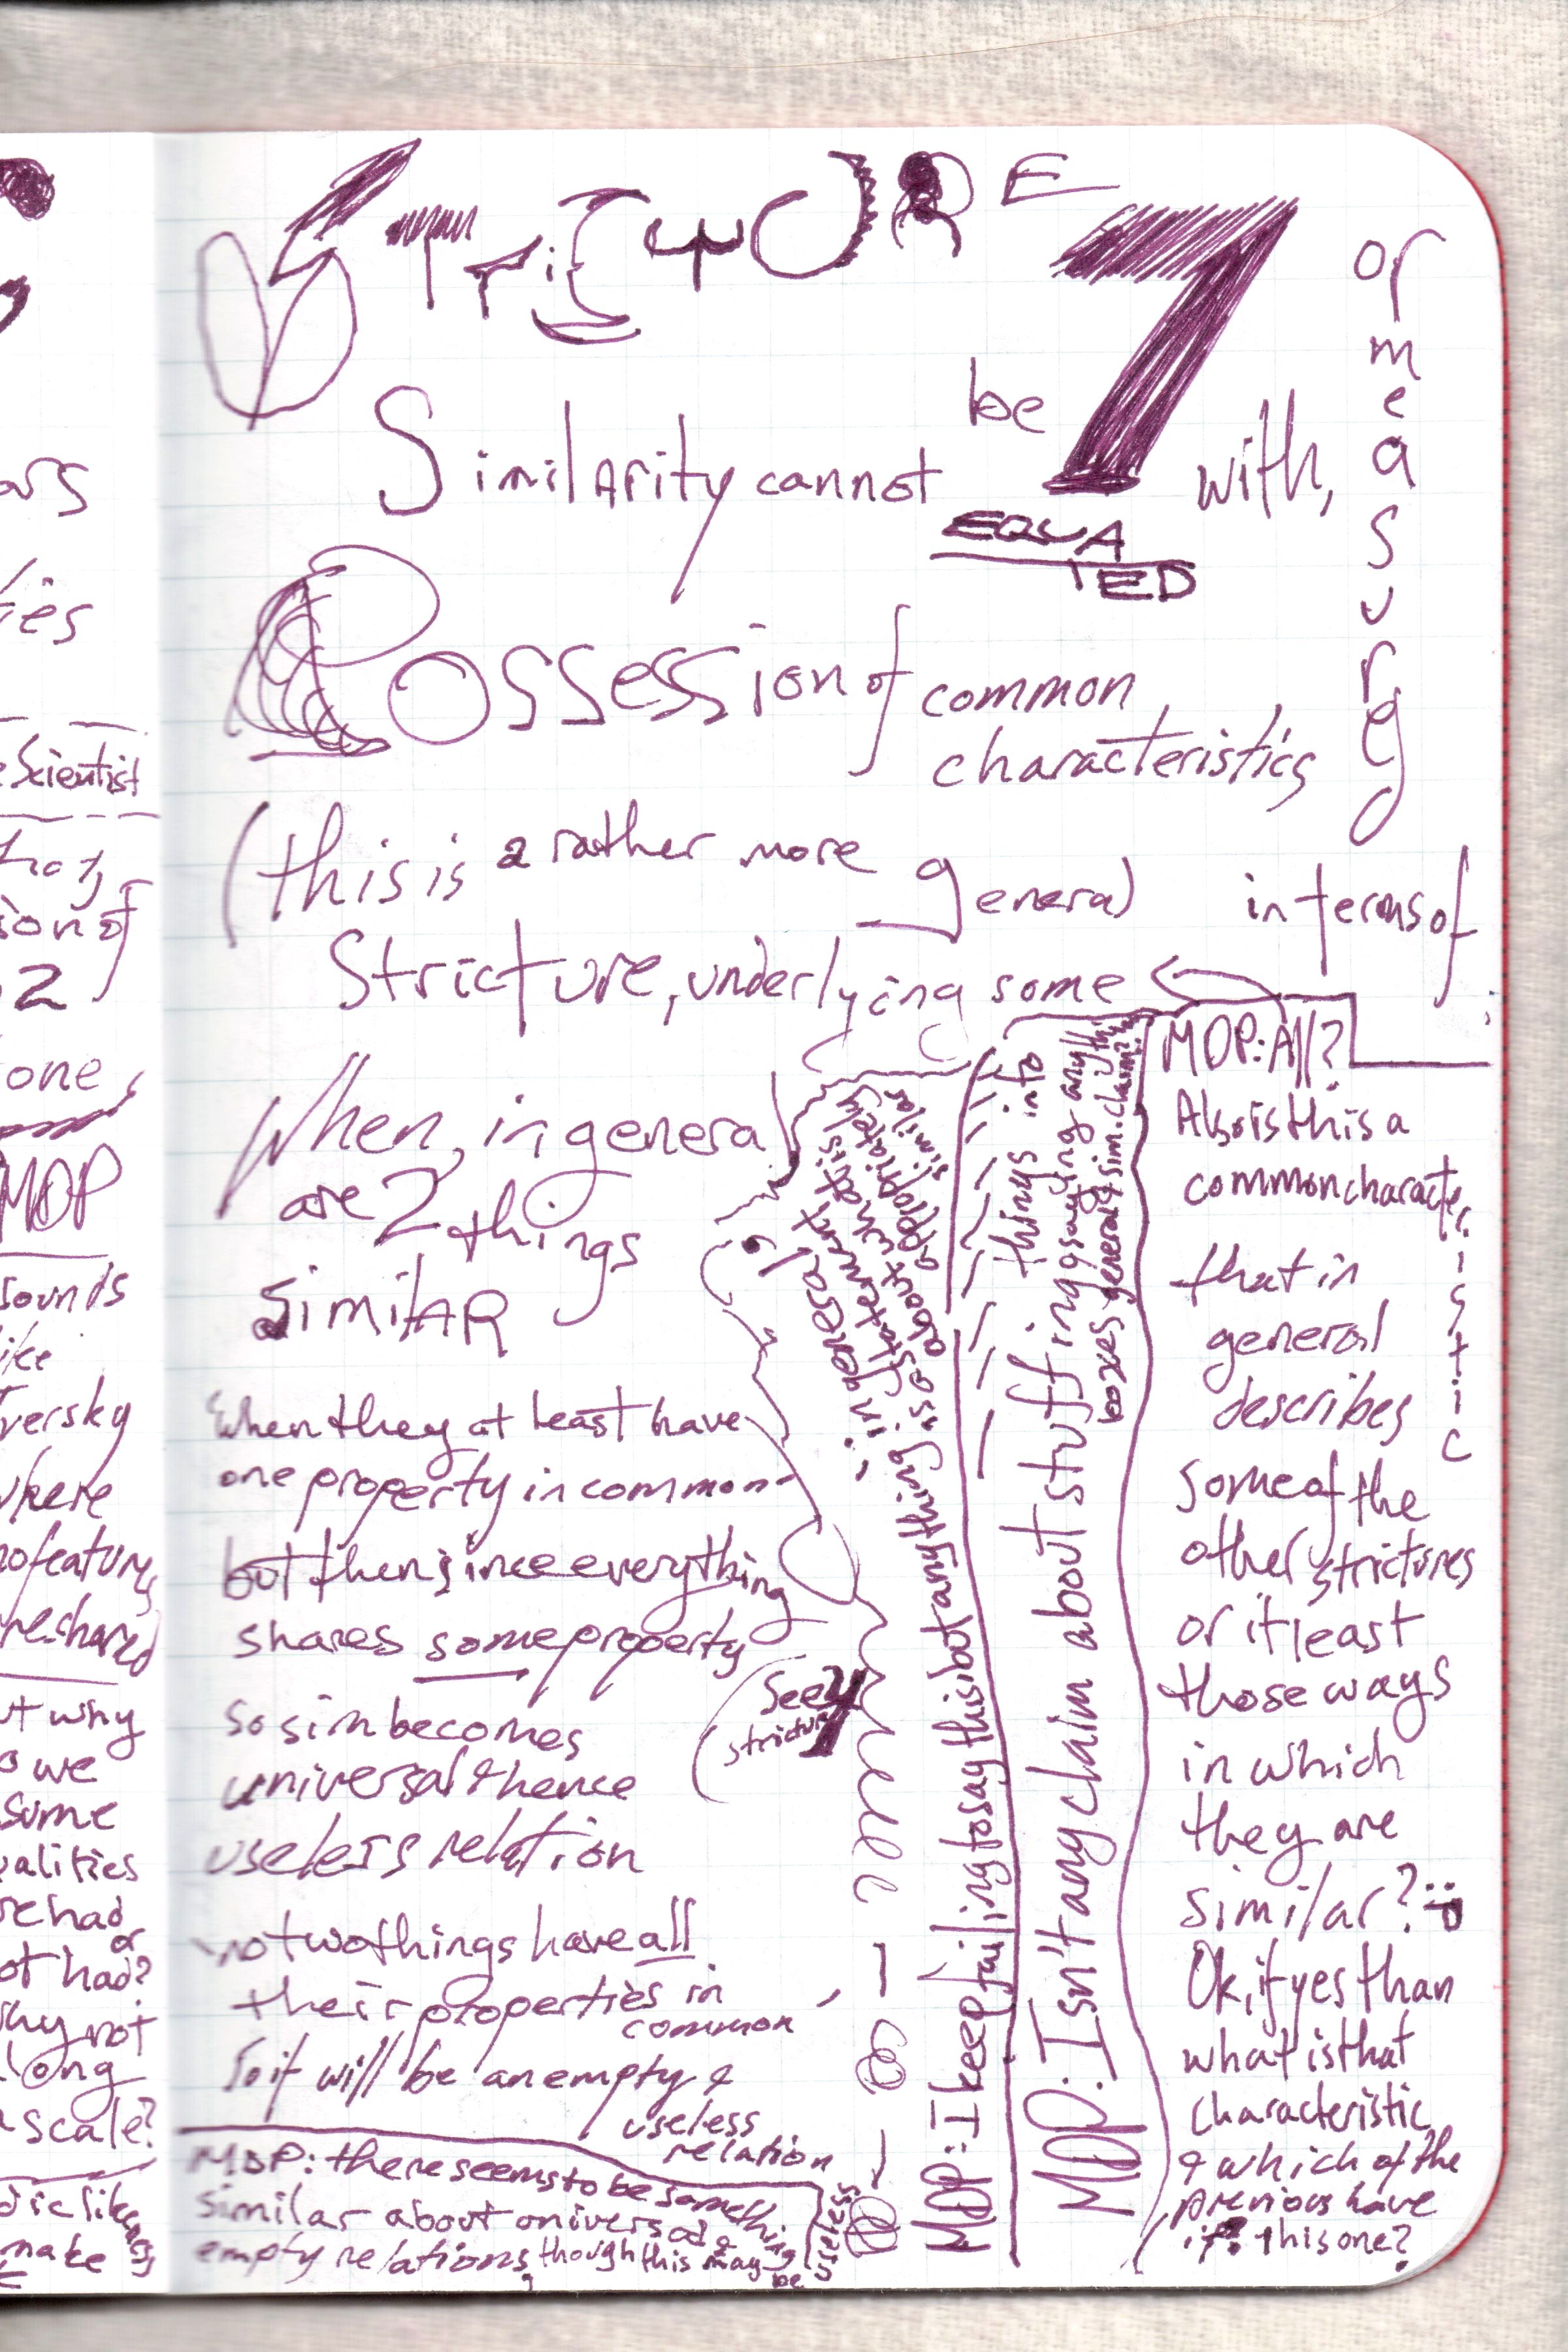 ars
ies
Scientist
son of
2
one,
MDP
sounds
like
versky
where
no feature
re shared
ut why
o we
sume
ualities
re had
or
ot had?
why not
long
a scale?
make
STRICTURE 7
Similarity cannot be
EQUA
TED
with,
or
measure
Possession of common
characteristics
(this is a rather more general
in terms of
Stricture, underlying some
When, in general
are 2 things
similar
When they at least have
one property in common
but then since everything
shares some property
so sim becomes
universal & hence
useless relation
(see
stricture
no two things have all
their properties in
common
So it will be an empty &
useless
relation
MDP: there seems to be something
similar about universal &
empty relations, though this may be
useless
"in general"
MDP: I keep failing to say this but anything is of statement
about what is
appropriately
similar
MDP: Isn't any claim about stuffing things into
boxes saying anything
general & sim. claim?
MDP: All?
Also is this a
common characteristic
that in
general
describes
some of the
other strictures
or it least
those ways
in which
they are
similar? :)
Ok, if yes than
what is that
characteristic
& which of the
previous have
it? this one?